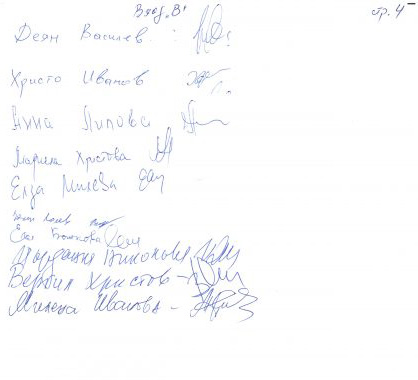 Вход „В" стр. 4
Деян Василев :
Христо Иванов
Анна Липова
Марила Христова
Елза Милева
Йордания Николова
Вербил Христов -
Милена Иванова -